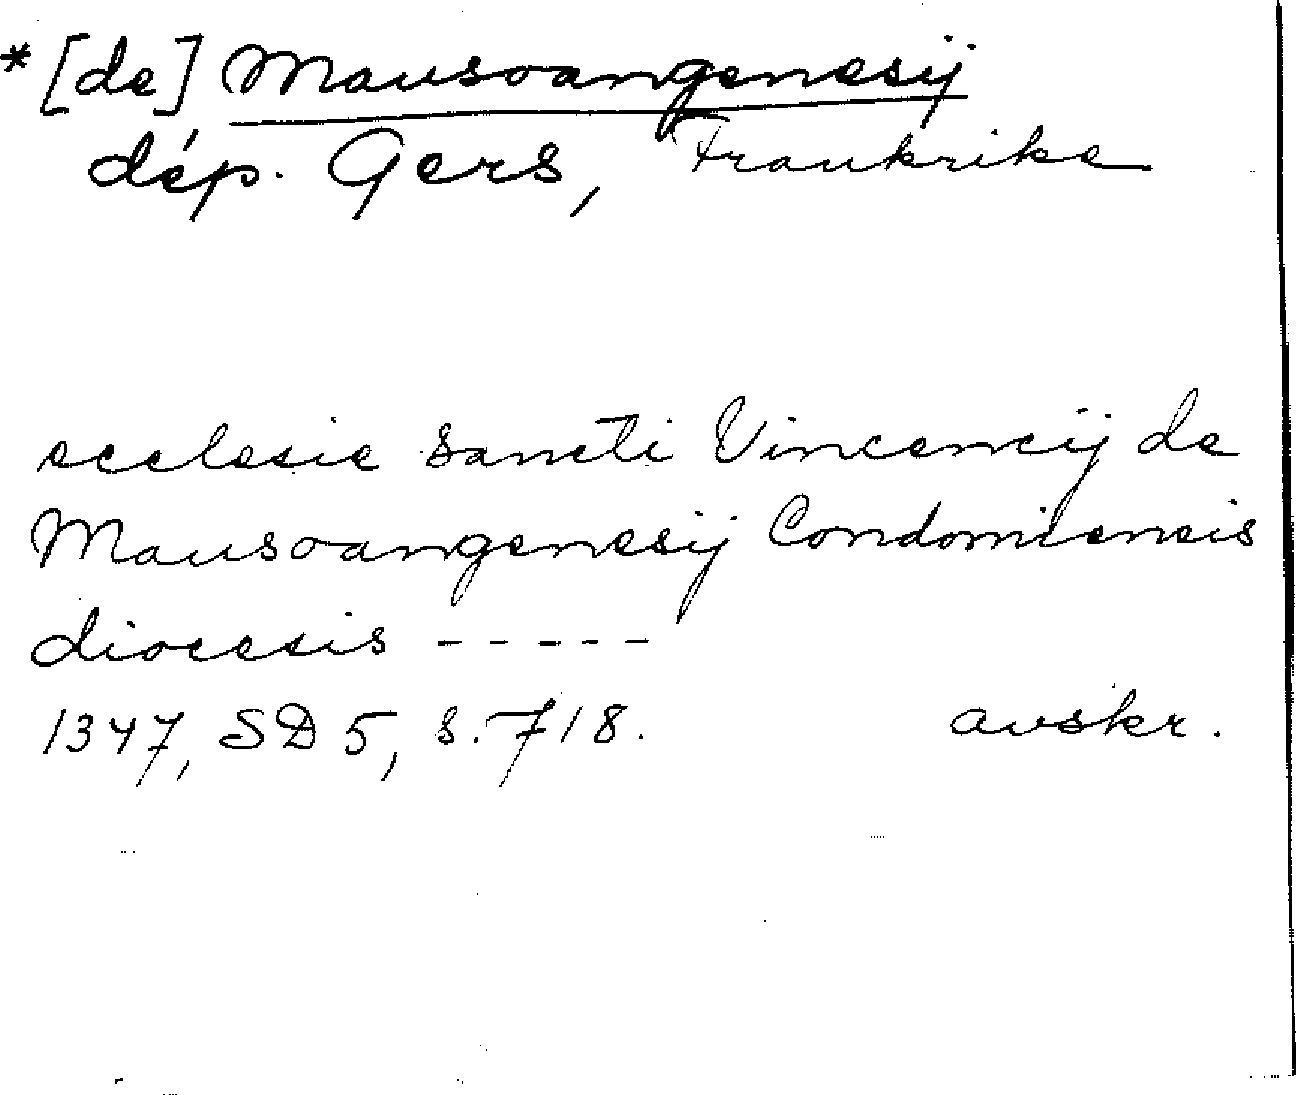 * [de] Mausoangenesij
dép. Gers, Frankrike
ecclesie sancti Vincencij de
Mausoangenesij Condomiensis
diocesis -----
1347, SD 5, s. 718. avskr.